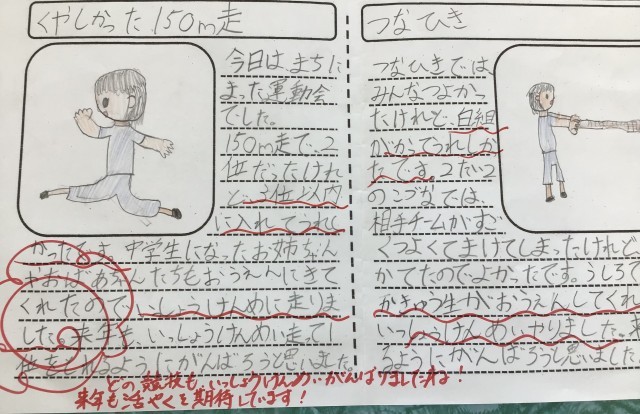 くやしかった150m走
今日は、まちに
まった運動会
でした。
150m走で、2
位だったけれ
ど、3位以内
に入れてうれし
かったです。中学生になったお姉ちゃん
やおばあちゃんたちもおうえんにきて
くれたので、いっしょうけんめいに走りま
した。来年も、いっしょうけんめい走って1
位をとれるようにがんばろうと思いました
つなひき
つなひきでは、
みんなつよかっ
たけれど、白組
がかててうれしかっ
たです。2たい2
のこうなでは、
相手チームがすご
くつよくてまけてしまったけれど
かてたのでよかったです。うしろで
かきゅう生がおうえんしてくれ
いっしょうけんめいやりました。
るようにがんばろうと思いました
どの競技も、いっしょうけんめいがんばりましたね!
来年も活やくを期待しています!